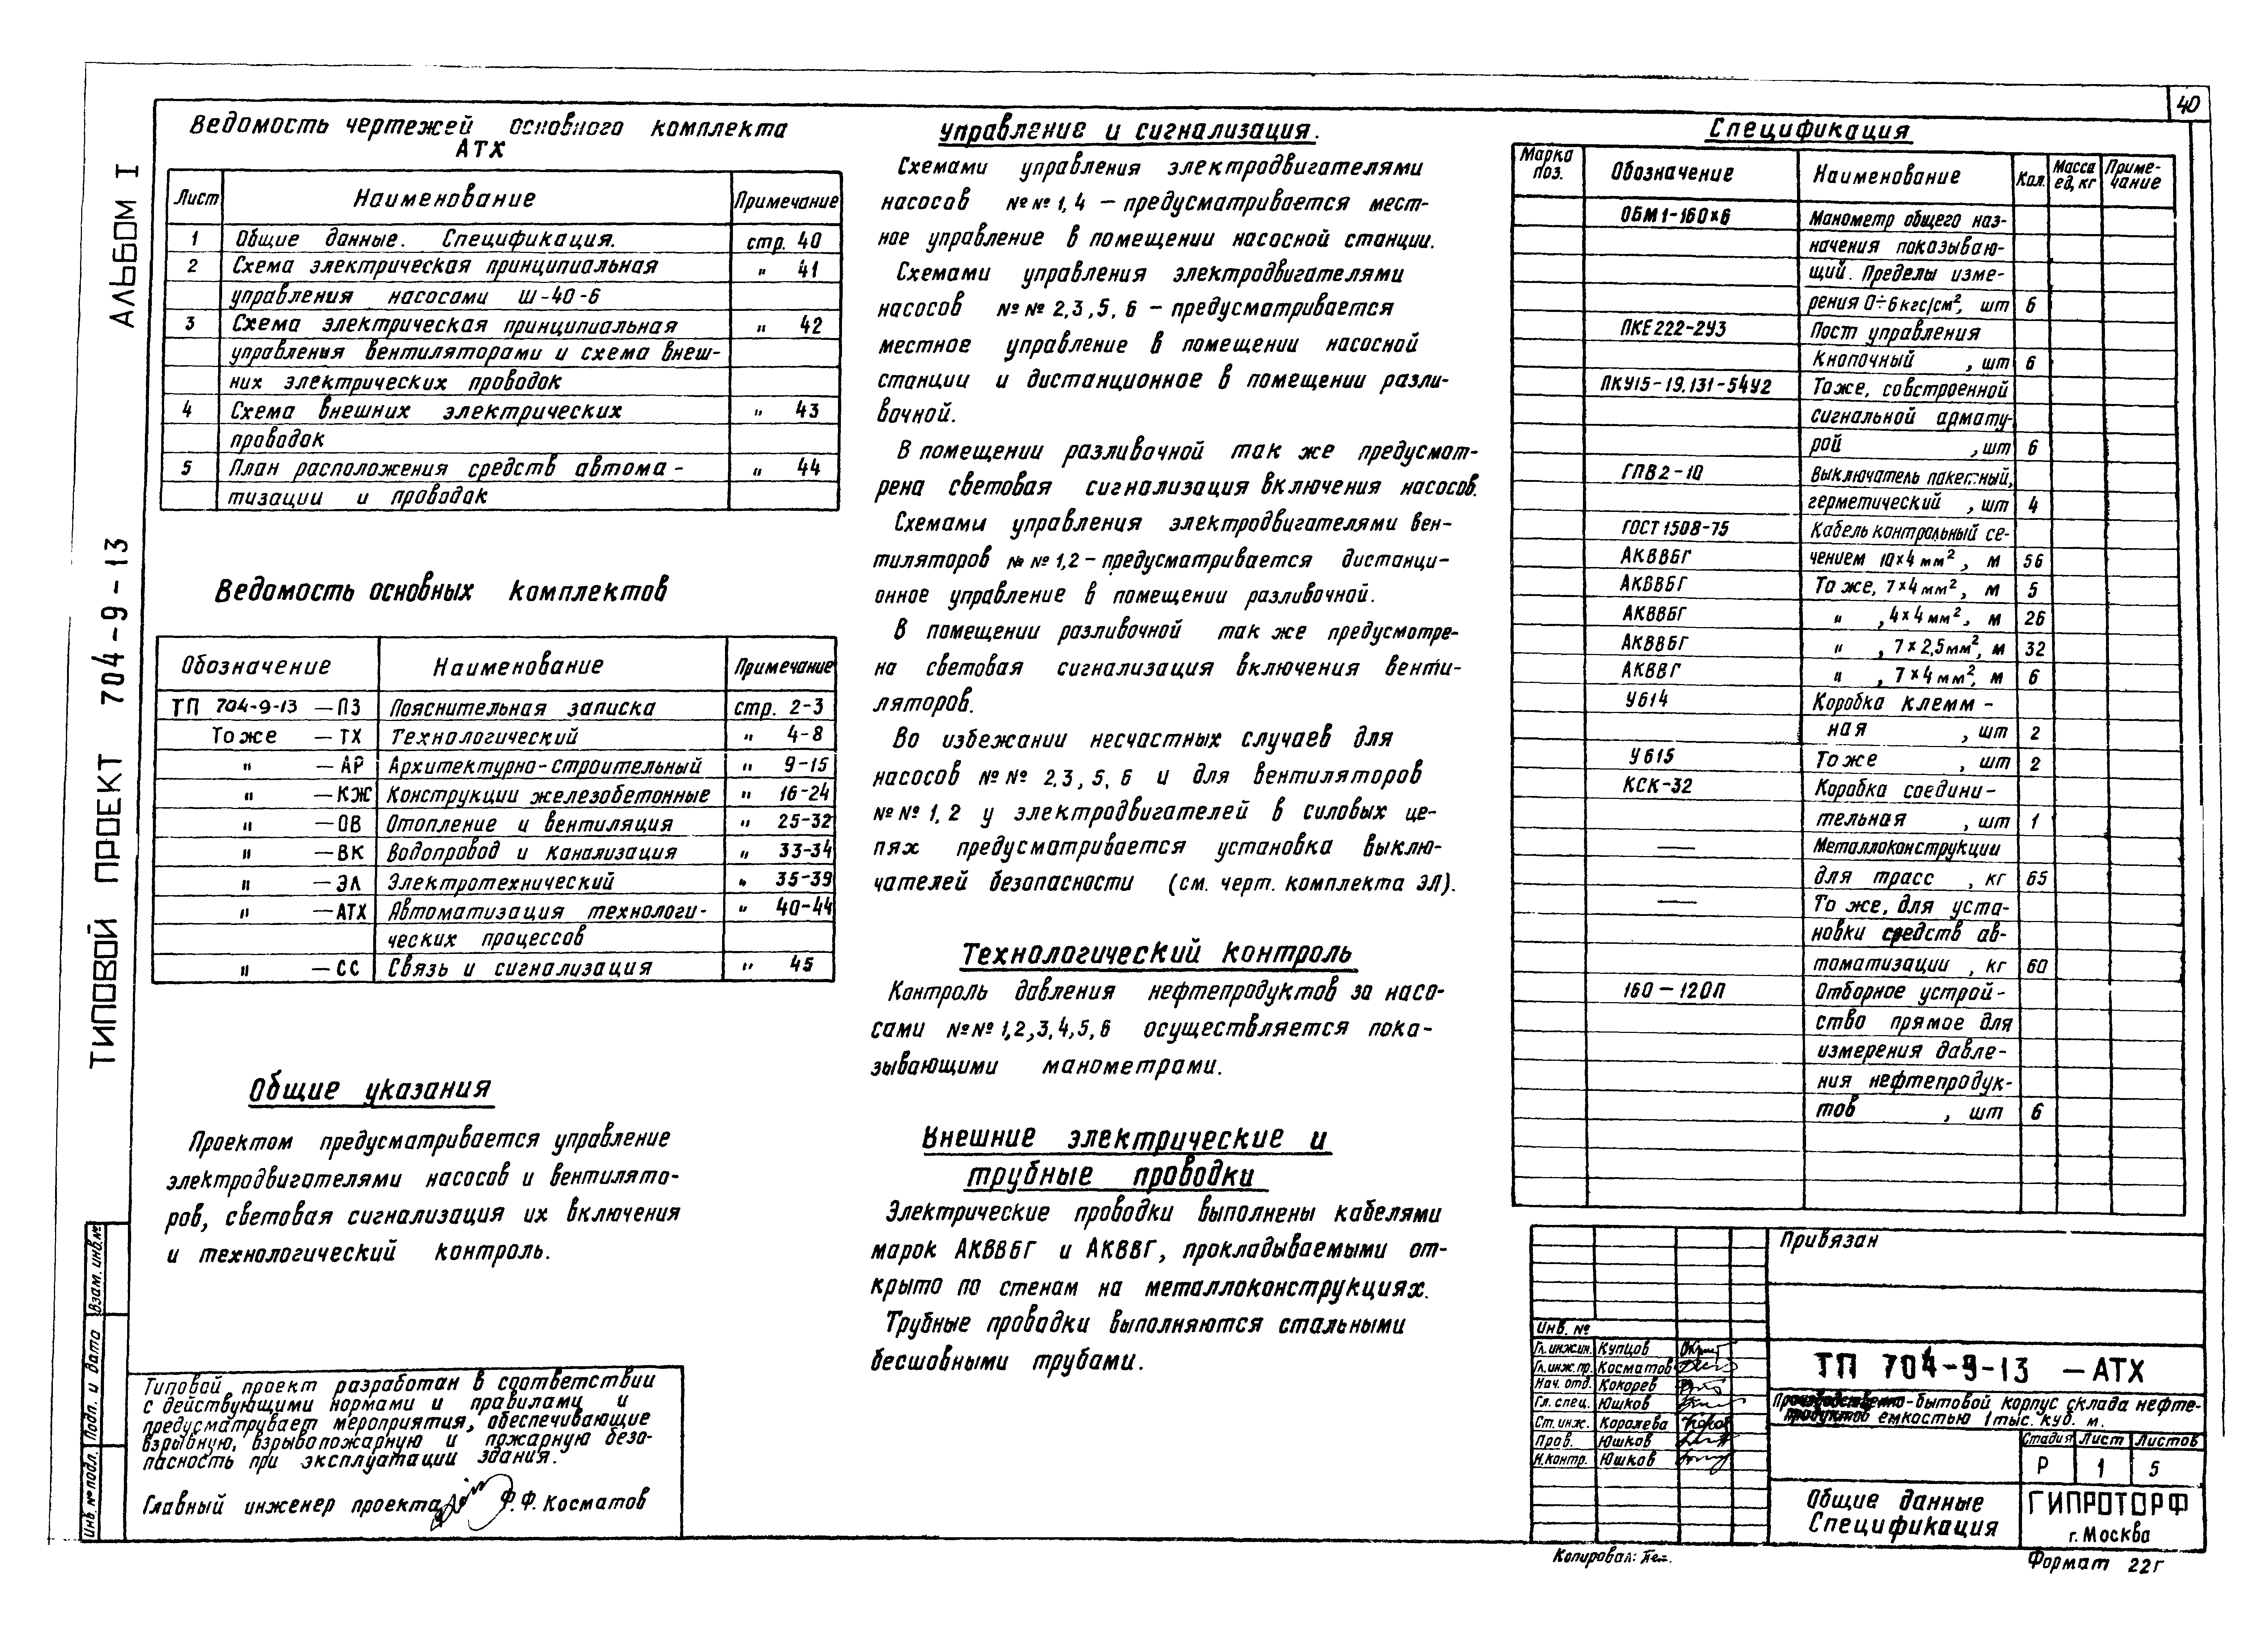 40
АЛЬБОМ I
ТИПОВОЙ ПРОЕКТ 704-9-13
Ведомость чертежей основного комплекта
АТХ
Лист Наименование Примечание
1 Общие данные. Спецификация. стр. 40
2 Схема электрическая принципиальная " 41
управления насосами Ш-40-6
3 Схема электрическая принципиальная " 42
управления вентиляторами и схема внеш-
них электрических проводок
4 Схема внешних электрических " 43
проводок
5 План расположения средств автома- " 44
тизации и проводок
Ведомость основных комплектов
Обозначение Наименование Примечание
ТП 704-9-13 -ПЗ Пояснительная записка стр. 2-3
То же -ТХ Технологический " 4-8
" -АР Архитектурно-строительный " 9-15
" -КЖ Конструкции железобетонные " 16-24
" -ОВ Отопление и вентиляция " 25-32
" -ВК Водопровод и канализация " 33-34
" -ЭЛ Электротехнический " 35-39
" -АТХ Автоматизация технологи- " 40-44
ческих процессов
" -СС Связь и сигнализация " 45
Общие указания
Проектом предусматривается управление
электродвигателями насосов и вентилято-
ров, световая сигнализация их включения
и технологический контроль.
Типовой проект разработан в соответствии
с действующими нормами и правилами и
предусматривает мероприятия, обеспечивающие
взрывную, взрывопожарную и пожарную безо-
пасность при эксплуатации здания.
Главный инженер проекта Ф.Ф. Косматов
Взам. инв.№
Подп. и дата
Инв. № подл.
Управление и сигнализация.
Схемами управления электродвигателями
насосов №№ 1, 4 – предусматривается мест-
ное управление в помещении насосной станции.
Схемами управления электродвигателями
насосов №№ 2,3,5,6 – предусматривается
местное управление в помещении насосной
станции и дистанционное в помещении разли-
вочной.
В помещении разливочной так же предусмот-
рена световая сигнализация включения насосов.
Схемами управления электродвигателями вен-
тиляторов №№ 1,2 – предусматривается дистанци-
онное управление в помещении разливочной.
В помещении разливочной так же предусмотре-
на световая сигнализация включения венти-
ляторов.
Во избежании несчастных случаев для
насосов №№ 2,3,5,6 и для вентиляторов
№№ 1,2 у электродвигателей в силовых це-
пях предусматривается установка выклю-
чателей безопасности (см. черт. комплекта ЭЛ).
Технологический контроль
Контроль давления нефтепродуктов за насо-
сами №№ 1,2,3,4,5,6 осуществляется пока-
зывающими манометрами.
Внешние электрические и
трубные проводки
Электрические проводки выполнены кабелями
марок АКВВБГ и АКВВГ, прокладываемыми от-
крыто по стенам на металлоконструкциях.
Трубные проводки выполняются стальными
бесшовными трубами.
Спецификация
Марка поз. Обозначение Наименование Кол. Масса ед, кг Приме-чание
ОБМ1-160х6 Манометр общего наз-
начения показываю-
щий. Пределы изме-
рения 0÷6 кгс/см², шт 6
ПКЕ222-2У3 Пост управления
Кнопочный , шт 6
ПКУ15-19.131-54У2 То же, со встроенной
сигнальной армату-
рой , шт 6
ГПВ2-10 Выключатель пакетный,
герметический , шт 4
ГОСТ 1508-75 Кабель контрольный се-
АКВВБГ чением 10х4 мм², м 56
АКВВБГ То же, 7х4 мм², м 5
АКВВБГ " , 4х4 мм², м 26
АКВВБГ " , 7х2,5мм², м 32
АКВВГ " , 7х4 мм², м 6
У614 Коробка клемм-
ная , шт 2
У615 То же , шт 2
КСК-32 Коробка соедини-
тельная , шт 1
— Металлоконструкции
для трасс , кг 65
— То же, для уста-
новки средств ав-
томатизации , кг 60
160-120П Отборное устрой-
ство прямое для
измерения давле-
ния нефтепродук-
тов , шт 6
Привязан
Инв. №
Гл. инж.ин. Купцов
Гл. инж. пр. Косматов
Нач. отд. Кокорев
Гл. спец. Юшков
Ст. инж. Королева
Пров. Юшков
Н.контр. Юшков
ТП 704-9-13 -АТХ
Производственно-бытовой корпус склада нефте-
продуктов емкостью 1 тыс. куб. м.
Стадия Лист Листов
Р 1 5
Общие данные
Спецификация
ГИПРОТОРФ
г. Москва
Копировал:
Формат 22г